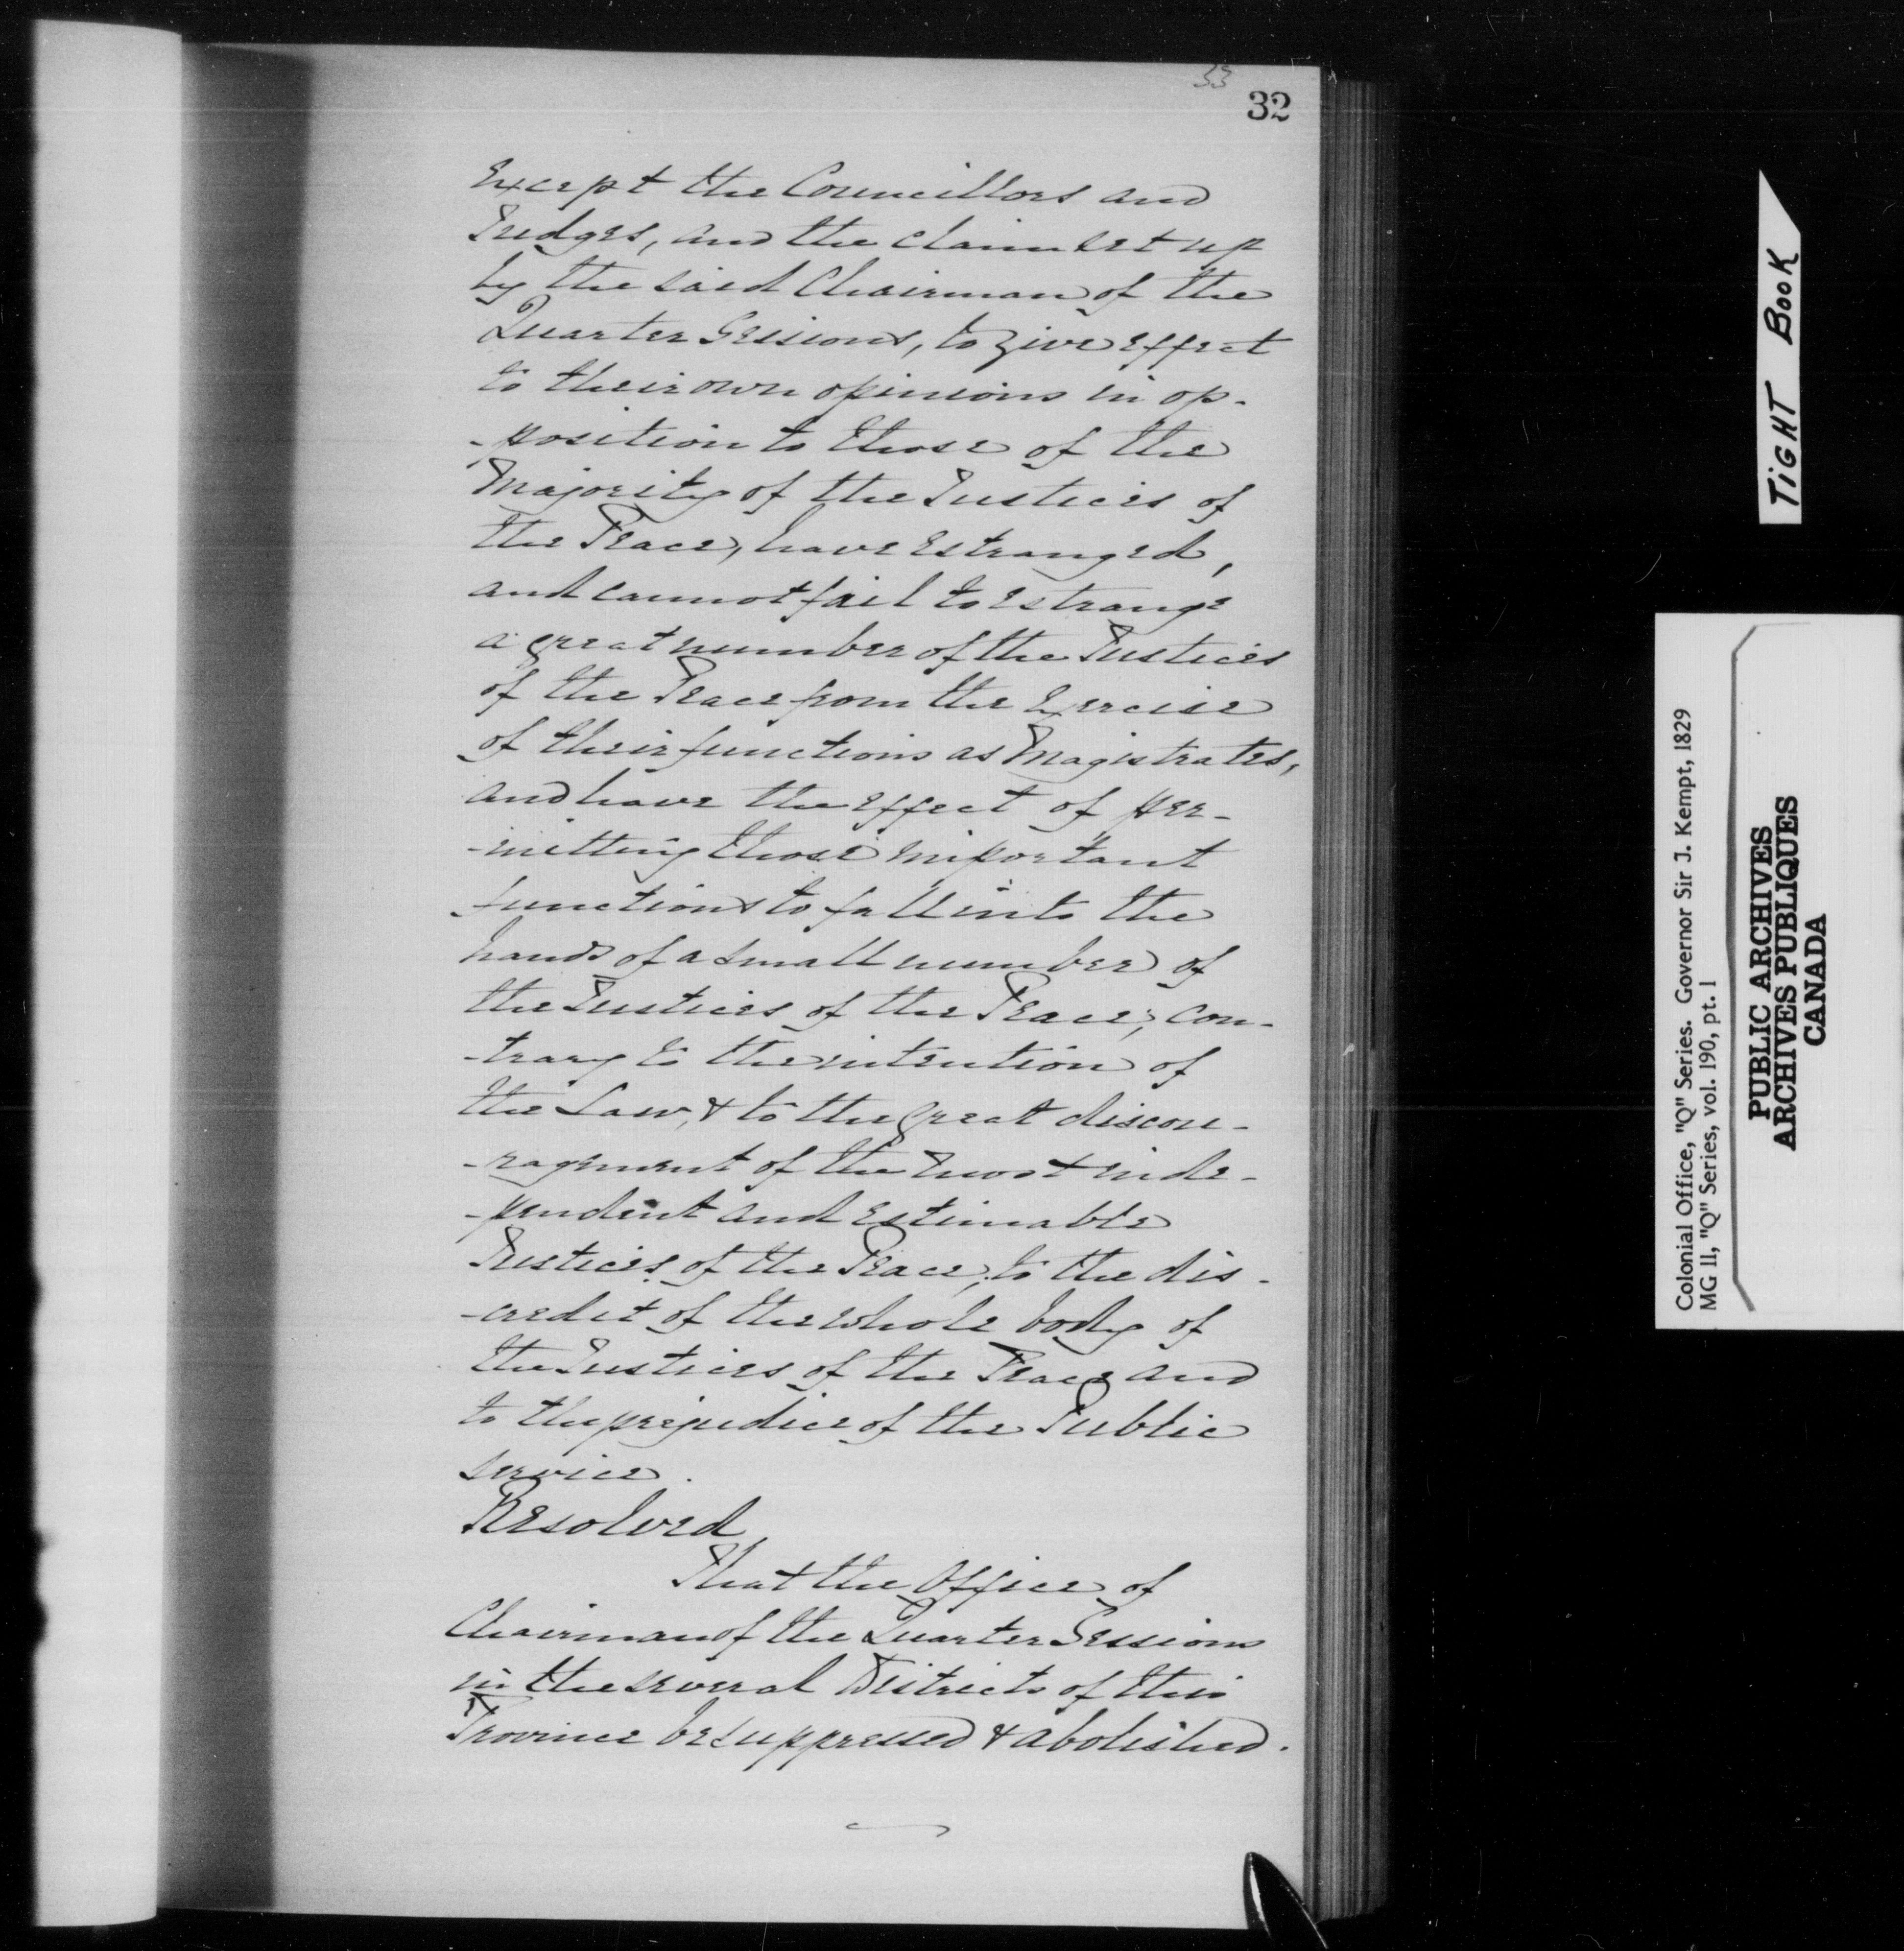 33
32
Except the Councillors and
Judges, and the claim set up
by the said Chairman of the
Quarter Sessions, to give effect
to their own opinions in op-
-position to those of the
Majority of the Justices of
the Peace, have estranged,
and cannot fail to estrange
a great number of the Justices
of the Peace from the Exercise
of their functions as Magistrates,
and have the effect of per-
-mitting those important
functions to fall into the
hands of a small number of
the Justices of the Peace, con-
-trary to the intention of
the Law, & to the great discou-
-ragement of the most inde-
-pendent and estimable
Justices of the Peace, to the dis-
-credit of the whole body of
the Justices of the Peace and
to the prejudice of the Public
service.
Resolved,
That the Office of
Chairman of the Quarter Sessions
in the several Districts of this
Province be suppressed & abolished.
TIGHT BOOK
Colonial Office, "Q" Series. Governor Sir J. Kempt, 1829
MG 11, "Q" Series, vol. 190, pt. 1
PUBLIC ARCHIVES
ARCHIVES PUBLIQUES
CANADA